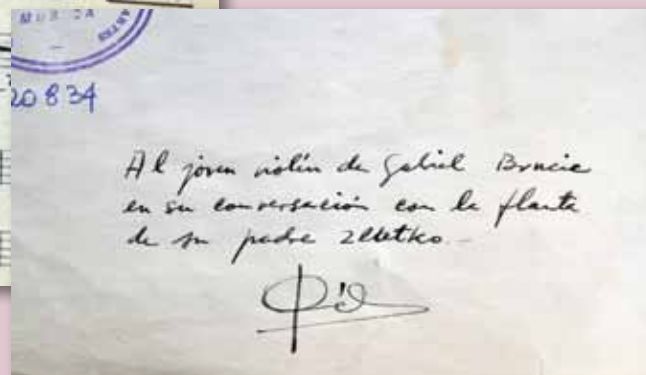 MUSICA
ARTES
20834
Al joven violín de Gabriel Brncic
en su conversación con la flauta
de su padre Zlatko.